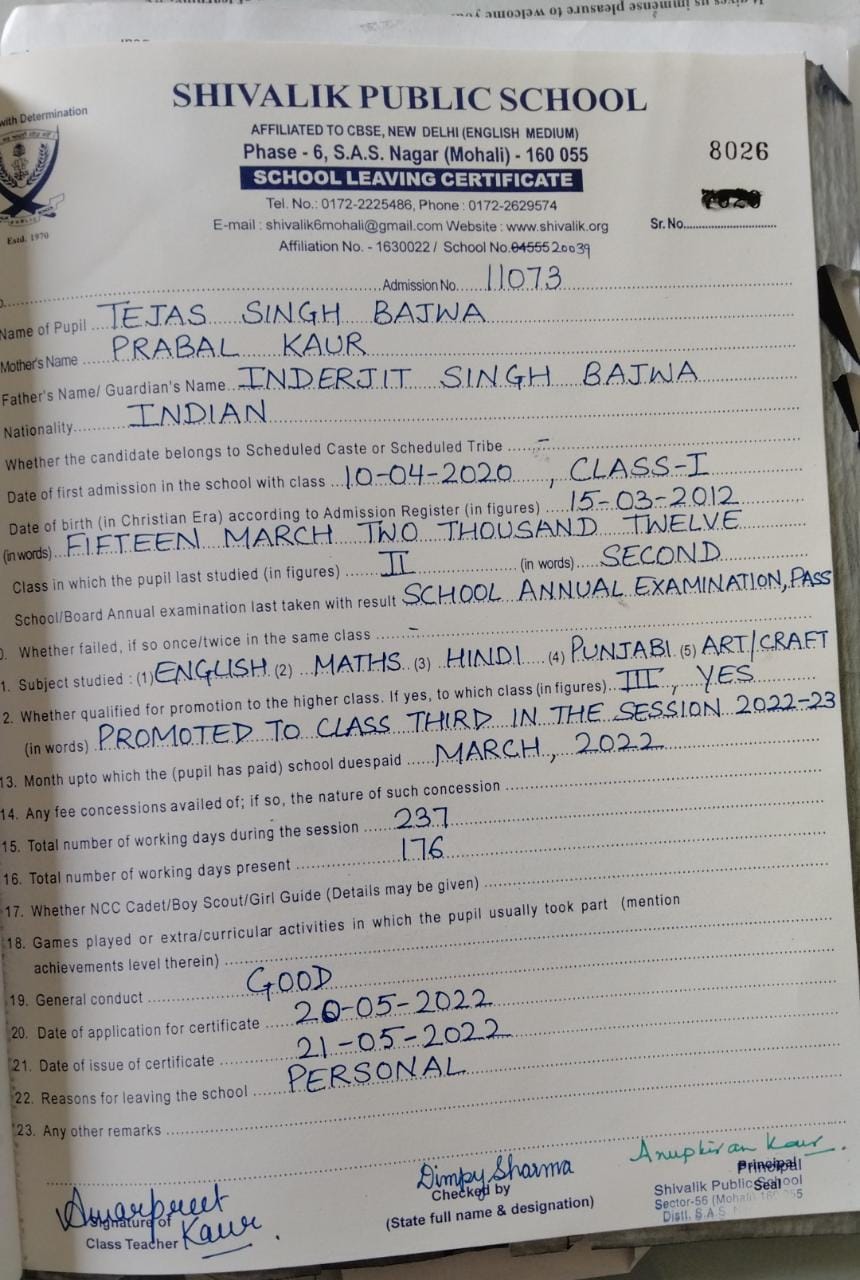 us immense pleasure to welcome
with Determination
Estd. 1970
SHIVALIK PUBLIC SCHOOL
AFFILIATED TO CBSE, NEW DELHI (ENGLISH MEDIUM)
Phase - 6, S.A.S. Nagar (Mohali) - 160 055
8026
SCHOOL LEAVING CERTIFICATE
Tel. No.: 0172-2225486, Phone : 0172-2629574
E-mail : shivalik6mohali@gmail.com Website : www.shivalik.org
Sr. No.
Affiliation No. - 1630022 / School No. 04555 20039
Admission No. 11073
Name of Pupil TEJAS SINGH BAJWA
Mother's Name PRABAL KAUR
Father's Name/ Guardian's Name INDERJIT SINGH BAJWA
Nationality INDIAN
Whether the candidate belongs to Scheduled Caste or Scheduled Tribe -
Date of first admission in the school with class 10-04-2020, CLASS-I
Date of birth (in Christian Era) according to Admission Register (in figures) 15-03-2012
(in words) FIFTEEN MARCH TWO THOUSAND TWELVE
Class in which the pupil last studied (in figures) II (in words) SECOND
School/Board Annual examination last taken with result SCHOOL ANNUAL EXAMINATION, PASS
0. Whether failed, if so once/twice in the same class -
1. Subject studied : (1) ENGLISH (2) MATHS (3) HINDI (4) PUNJABI (5) ART/CRAFT
2. Whether qualified for promotion to the higher class. If yes, to which class (in figures) III, YES
(in words) PROMOTED TO CLASS THIRD IN THE SESSION 2022-23
13. Month upto which the (pupil has paid) school duespaid MARCH, 2022
14. Any fee concessions availed of; if so, the nature of such concession
15. Total number of working days during the session 237
16. Total number of working days present 176
17. Whether NCC Cadet/Boy Scout/Girl Guide (Details may be given)
18. Games played or extra/curricular activities in which the pupil usually took part (mention
achievements level therein)
19. General conduct GOOD
20. Date of application for certificate 20-05-2022
21. Date of issue of certificate 21-05-2022
22. Reasons for leaving the school PERSONAL
23. Any other remarks
Amarpreet Kaur
Signature of
Class Teacher
Dimpy Sharma
Checked by
(State full name & designation)
Anupkiran Kaur
Principal
Seal
Shivalik Public School
Sector-56 (Mohali)
Distt. S.A.S.